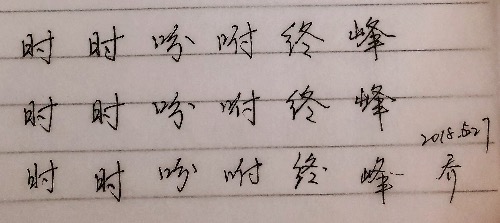 时 时 吩 咐 终 峰
时 时 吩 咐 终 峰
2018.5.27
时 时 吩 咐 终 峰 乔